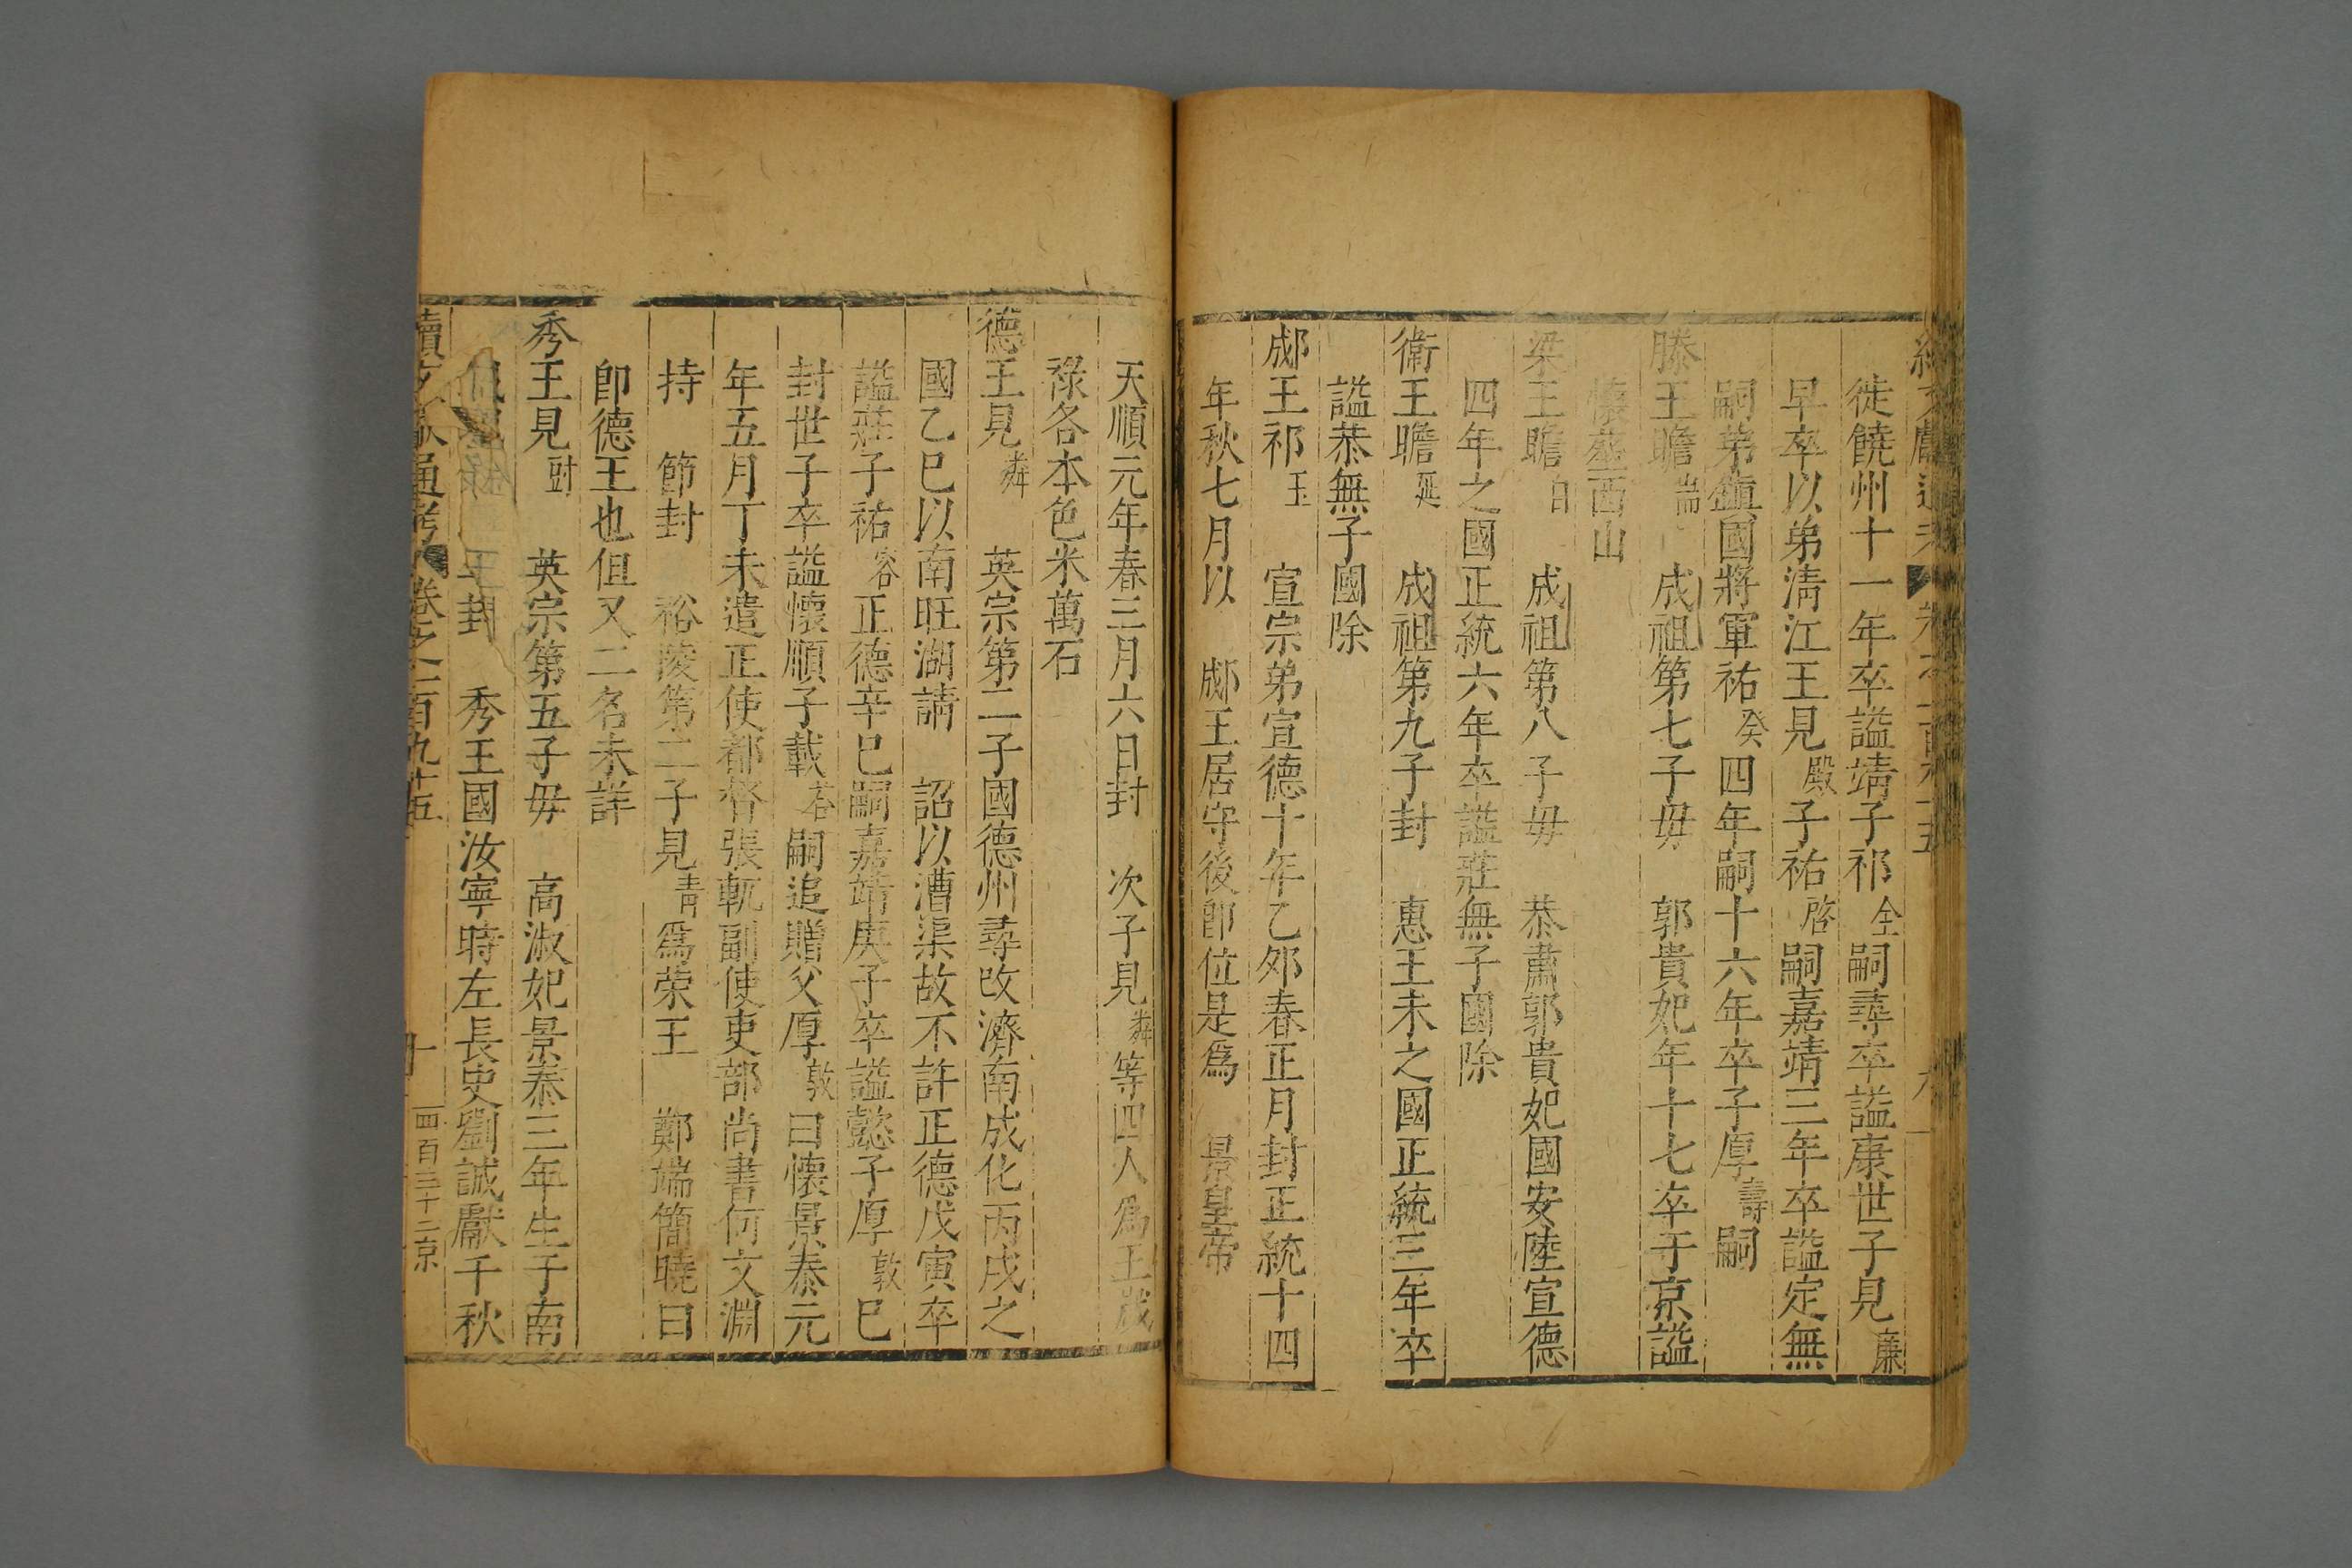 徙饒州十一年卒謚靖子祁全嗣尋卒謚康世子見廉
早卒以弟淸江王見殿子祐啓嗣嘉靖三年卒謚定無
嗣弟鎮國將軍祐癸四年嗣十六年卒子厚壽嗣
滕王瞻 成祖第七子毋 郭貴妃年十七卒于京謚
懷葬西山
梁王瞻白 成祖第八子毋 恭肅郭貴妃國安陸宣德
四年之國正統六年卒謚莊無子國除
衛王瞻延 成祖第九子封 惠王未之國正統三年卒
謚恭無子國除
郕王祁玉 宣宗弟宣德十年乙夘春正月封正統十四
年秋七月以 郕王居守後卽位是爲 景皇帝
天順元年春三月六日封 次子見粦等四人爲王歲
祿各本色米萬石
德王見粦 英宗第二子國德州尋改濟南成化丙戌之
國乙巳以南旺湖請 詔以漕渠故不許正德戊寅卒
謚莊子祐容正德辛巳嗣嘉靖庚子卒謚懿子厚敦巳
封世子卒謚懷順子載 嗣追贈父厚敦曰懷景泰元
年五月丁未遣正使都督張軏副使吏部尚書何文淵
持 節封 裕陵第二子見青爲荣王 鄭端簡曉曰
卽德王也但又二名未詳
秀王見尌 英宗第五子毋 高淑妃景泰三年生子南
王封 秀王國汝寧時左長史劉誠獻千秋
續文獻通考 卷之二百九十五 十 四百三十二京